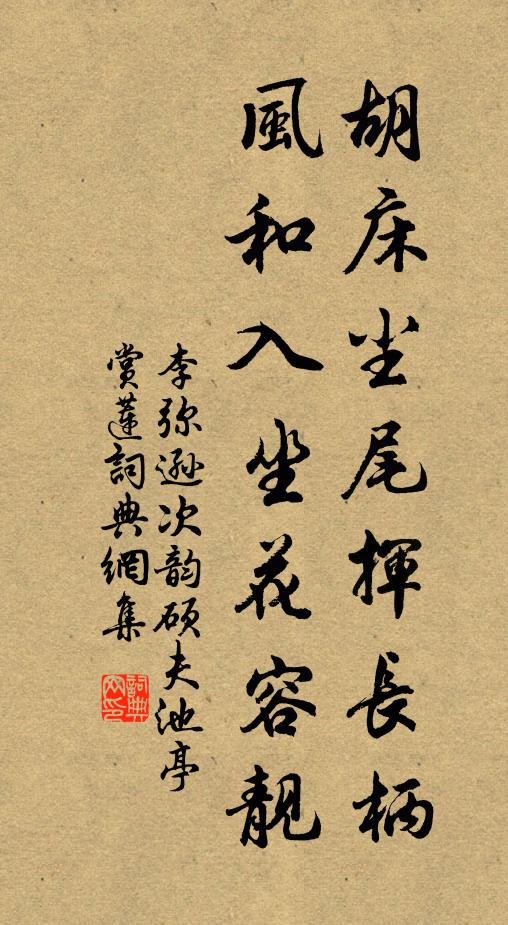 胡床尘尾揮長柄
風和入坐花容靚
李弥遜次韵硕夫池亭
賞蓮詞典網集
詞典